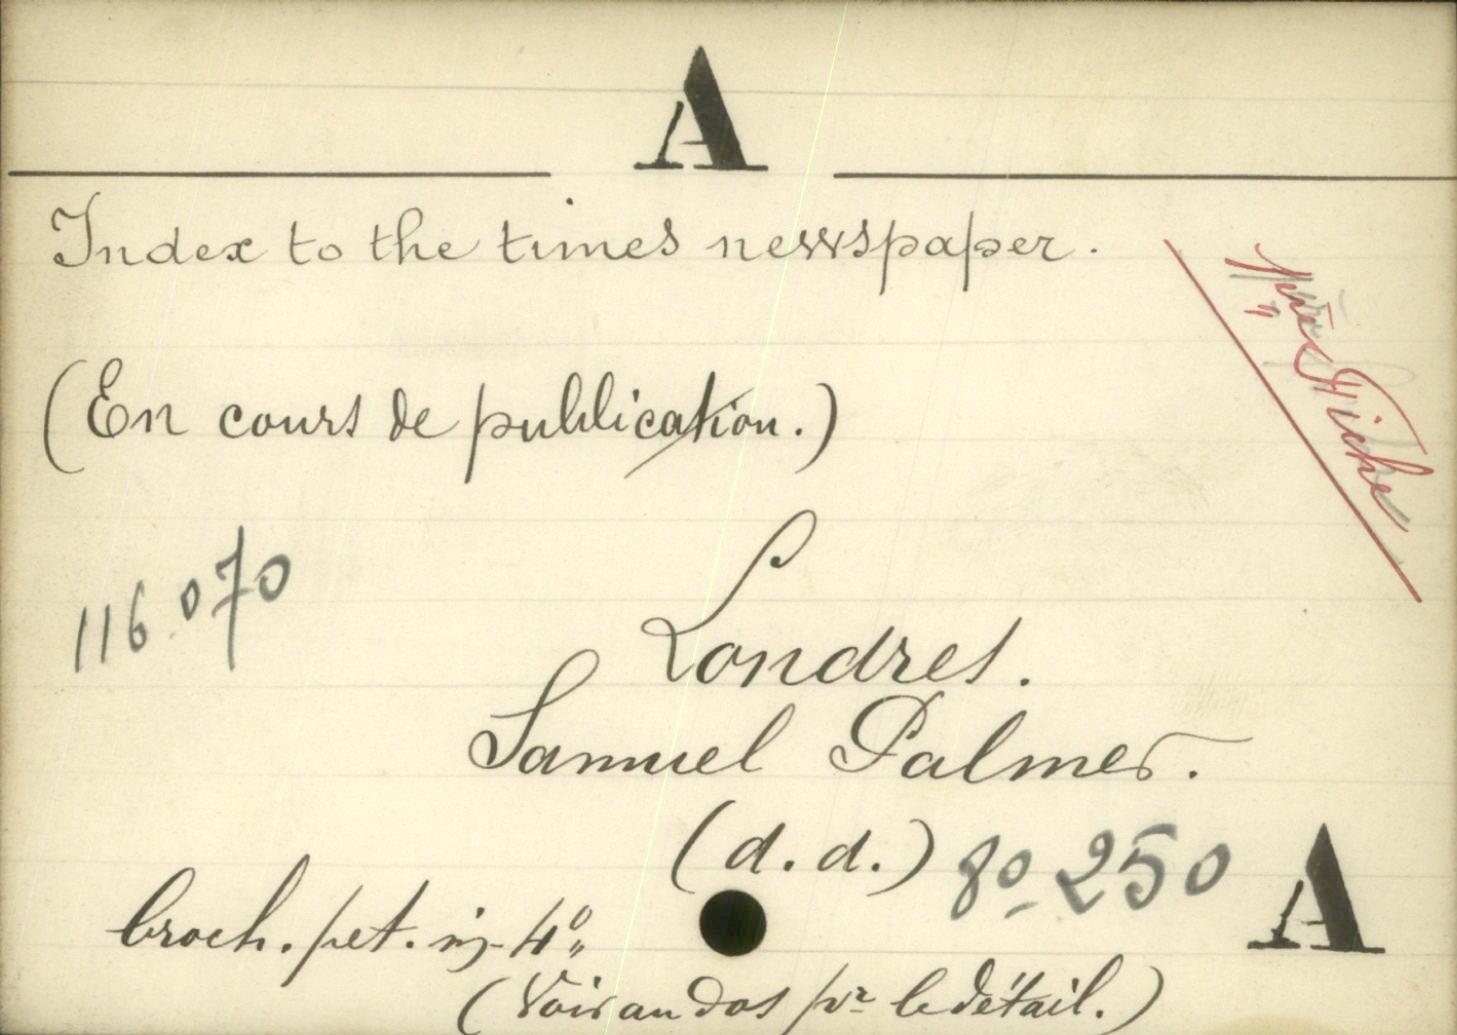 A
Index to the times newspaper.
(En cours de publication.)
116.070
Londres.
Samuel Palmer.
(d. d.) 8º 250
A
broch. pet. in-4º„
(Voir au dos pr le détail.)
Fiche